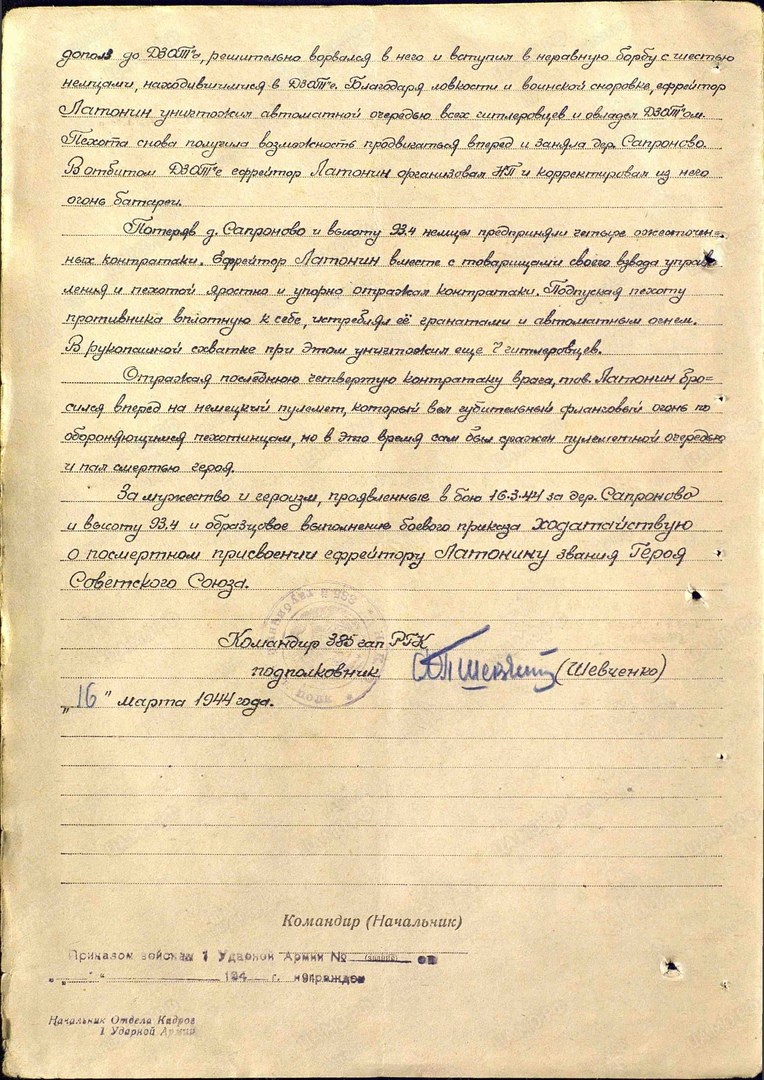 дополз до ДЗОТ'а, решительно ворвался в него и вступил в неравную борьбу с шестью
немцами, находившимися в ДЗОТ'е. Благодаря ловкости и воинской сноровке, ефрейтор
Латонин уничтожил автоматной очередью всех гитлеровцев и овладел ДЗОТ'ом.
Пехота снова получила возможность продвигаться вперед и заняла дер. Сапроново.
В отбитом ДЗОТ'е ефрейтор Латонин организовал НП и корректировал из него
огонь батареи.
Потеряв д. Сапроново и высоту 93.4 немцы предприняли четыре ожесточен-
ных контратаки. Ефрейтор Латонин вместе с товарищами своего взвода управ-
ленья и пехотой яростно и упорно отражал контратаки. Подпуская пехоту
противника вплотную к себе, истреблял её гранатами и автоматным огнем.
В рукопашной схватке при этом уничтожил еще 7 гитлеровцев.
Отражая последнюю четвертую контратаку врага, тов. Латонин бро-
сился вперед на немецкий пулемет, который вел губительный фланговый огонь по
обороняющимся пехотинцам, но в это время сам был сражен пулеметной очередью
и пал смертью героя.
За мужество и героизм, проявленные в бою 16.3.44 за дер. Сапроново
и высоту 93.4 и образцовое выполнение боевого приказа ходатайствую
о посмертном присвоении ефрейтору Латонину звания Героя
Советского Союза.
Командир 385 гап РГК
подполковник (Шевченко)
„16" марта 1944 года.
Командир (Начальник)
Приказом войскам 1 Ударной Армии № от
„ " 194 г. награжден
Начальник Отдела Кадров
1 Ударной Армии